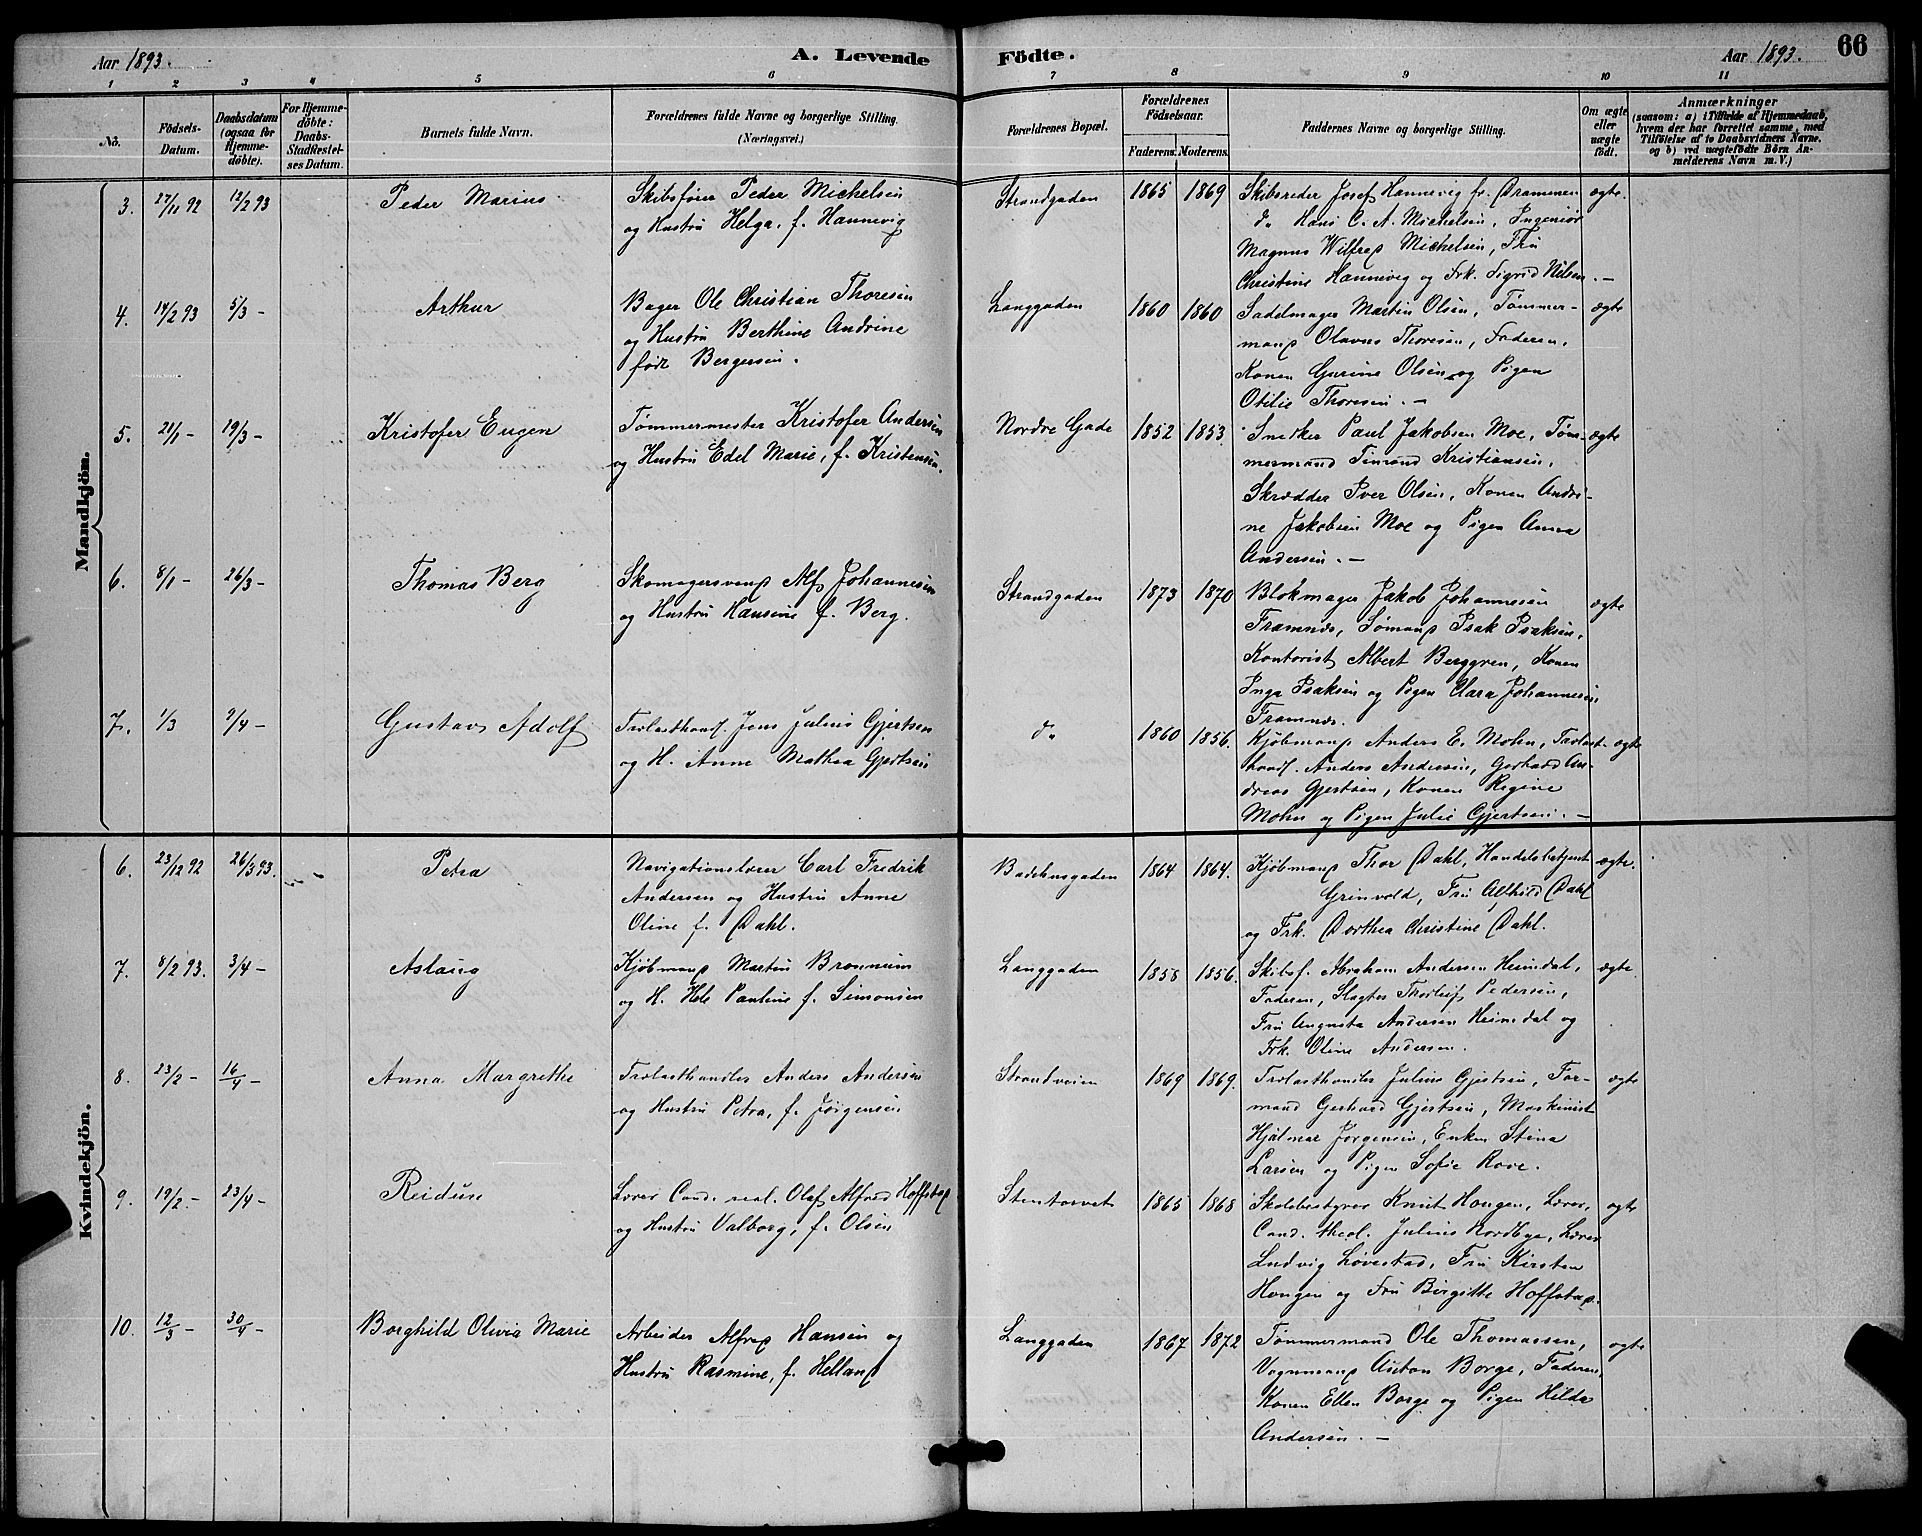 Aar 1893.
A. Levende Födte.
Aar 1893.
66
1 2 3 4 5 6 7 8 9 10 11
No.
Födsels-Datum.
Daabsdatum (ogsaa for Hjemmedöbte).
For Hjemmedöbte: Daabs-Stadfæstelses Datum.
Barnets fulde Navn.
Forældrenes fulde Navne og borgerlige Stilling. (Næringsvei.)
Forældrenes Bopæl.
Forældrenes Födselsaar.
Faderens. Moderens.
Faddernes Navne og borgerlige Stilling.
Om ægte eller uægte födt.
Anmærkninger
(saasom: a) i Tilfælde af Hjemmedaab,
hvem der har forrettet samme, med
Tilföielse af to Daabsvidners Navne.
og b) ved uægtefödte Börn An-
melderens Navn m. V.)
Mandkjön.
3. 27/11 92 12/2 93 Peder Marius
Skibsfører Peder Michelsen
og Hustru Helga, f. Hannevig
Strandgaden 1865 1869
Skibsreder Josef Hannevig fr. Drammen
do Hans C. A. Michelsen, Ingeniør
Magnus Wilfred Michelsen, Fru
Christine Hannevig og Frk. Sigrid Nilsen. –
ægte.
4. 14/2 93 5/3 – Arthur
Bager Ole Christian Thoresen
og Hustru Berthine Andrine
født Bergersen.
Langgaden 1860 1860
Sadelmager Martin Olsen, Tømmer-
mand Olavus Thoresen, Faderen,
Konen Gurine Olsen og Pigen
Otilie Thoresen. –
ægte
5. 21/1 – 19/3 – Kristofer Eugen
Tømmermester Kristofer Andersen
og Hustru Edel Marie, f. Kristensen.
Nordre Gade 1852 1853.
Snedker Paul Jakobsen Moe, Tøm-
mermand Simand Kristiansen,
Skrædder Iver Olsen, Konen Andri-
ne Jakobsen Moe og Pigen Anna
Andersen. –
ægte
6. 8/1 – 26/3 – Thomas Berg
Skomagersvend Alf Johannesen
og Hustru Hansine f. Berg.
Strandgaden 1873 1870
Blokmager Jakob Johannesen
Framnæs, Sømand Isak Isaksen,
Kontorist Albert Berggren, Konen
Inga Isaksen og Pigen Clara Johannesen
Framnæs.
ægte
7. 1/3 9/4 – Gustav Adolf
Trælasthandl. Jens Julius Gjertsen
og H. Anne Mathea Gjertsen
do 1860 1856.
Kjøbmand Anders E. Mohn, Trælast-
handl. Anders Andersen, Gerhard An-
dreas Gjertsen, Konen Regine
Mohn og Pigen Julie Gjertsen. –
ægte
Kvindekjön.
6. 23/12 92 26/3 93. Petra
Navigationslærer Carl Fredrik
Andersen og Hustru Anne
Oline f. Dahl.
Badehusgaden 1864 1864.
Kjøbmand Thor Dahl, Handelsbetjent
Grinvold, Fru Alfhild Dahl
og Frk. Dorthea Christine Dahl.
ægte.
7. 8/2 93. 3/4 – Aslaug
Kjøbmand Martin Bronnum
og H. Hele Pauline f. Simonsen
Langgaden 1858 1856.
Skibsf. Abraham Andersen Heimdal,
Faderen, Slagter Thorleif Pedersen,
Fru Augusta Andersen Heimdal og
Frk. Oline Andersen.
ægte.
8. 23/2 – 16/4 – Anna Margrethe
Trælasthandler Anders Andersen
og Hustru Petra, f. Jørgensen
Strandveien 1869 1869.
Trælasthandler Julius Gjertsen, For-
mand Gerhard Gjertsen, Maskinist
Hjalmar Jørgensen, Enken Stina
Larsen og Pigen Sofie Rove.
ægte
9. 19/2. – 23/4 – Reidun
Lærer Cand. real. Olaf Alfred Hoffstad
og Hustru Valborg, f. Olsen
Stentorvet 1865 1868
Skolebestyrer Knut Hongen, Lærer,
Cand. theol. Julius Nordbye, Lærer
Ludvig Løvestad, Fru Kirsten
Hongen og Fru Birgitte Hoffstad.
ægte
10. 12/3 – 30/4 – Borghild Olivia Marie
Arbeider Alfred Hansen og
Hustru Rasmine, f. Helland
Langgaden 1867 1872
Tømmermand Ole Thomassen,
Vognmand Anton Borge, Faderen,
Konen Ellen Borge og Pigen Hilda
Andersen. –
ægte